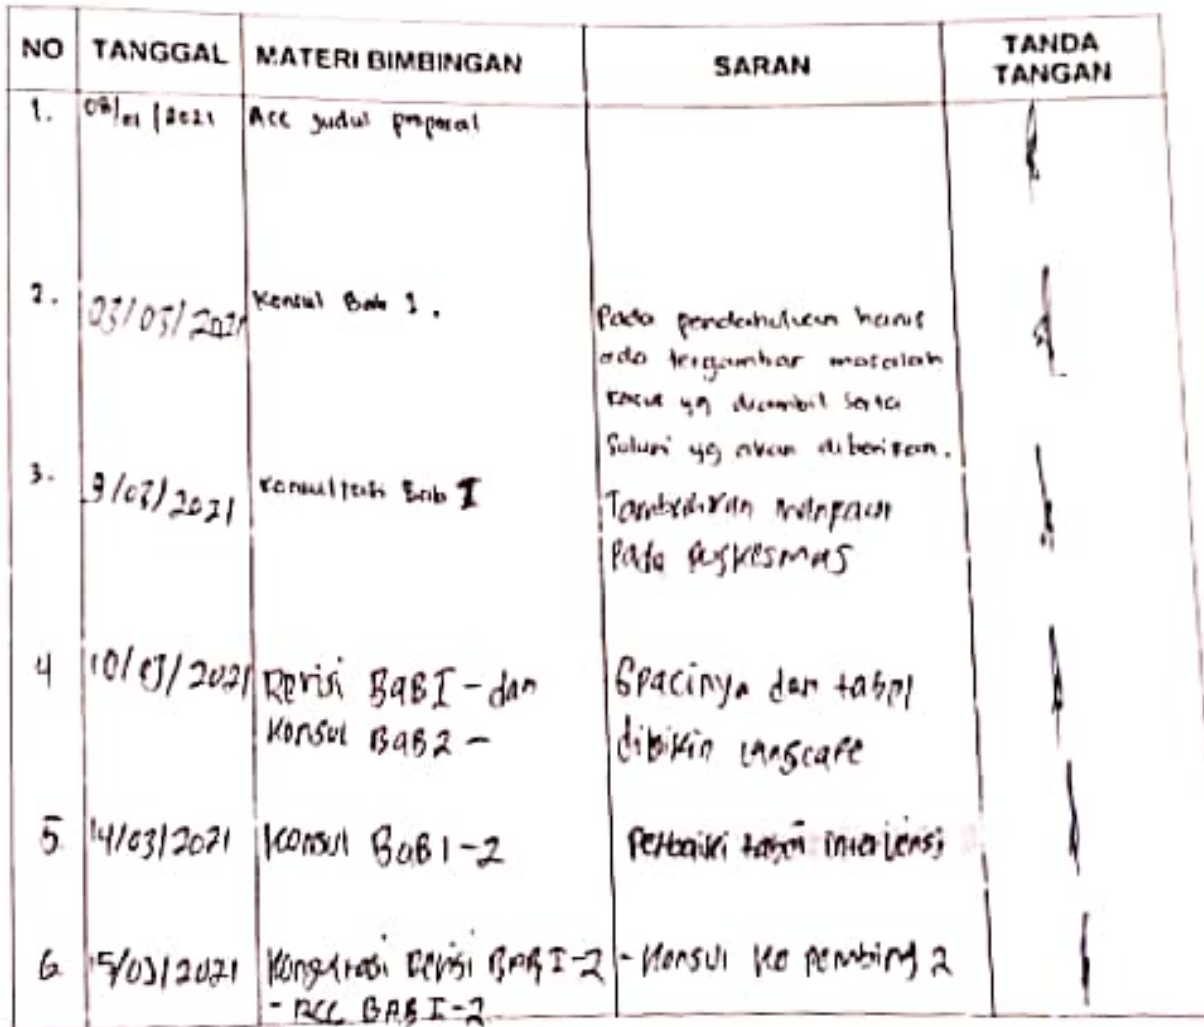 NO TANGGAL MATERI BIMBINGAN SARAN TANDA TANGAN
1. 08/01/2021 Acc judul proposal
2. 03/03/2021 Konsul Bab I.
Pada pendahuluan harus
ada tergambar masalah
kasus yg diambil serta
Solusi yg akan diberikan.
3. 9/03/2021 Konsultasi Bab I
Tambahkan
Pada Puskesmas
4 10/03/2021 Revisi BAB I - dan
Konsul BAB 2 -
Spacinya dan tabel
dibikin langscape
5. 14/03/2021 Konsul BAB 1-2 Perbaiki tabel intervensi
6 15/03/2021 Revisi BAB I-2 - Konsul ke pembing 2
- ACC BAB I-2